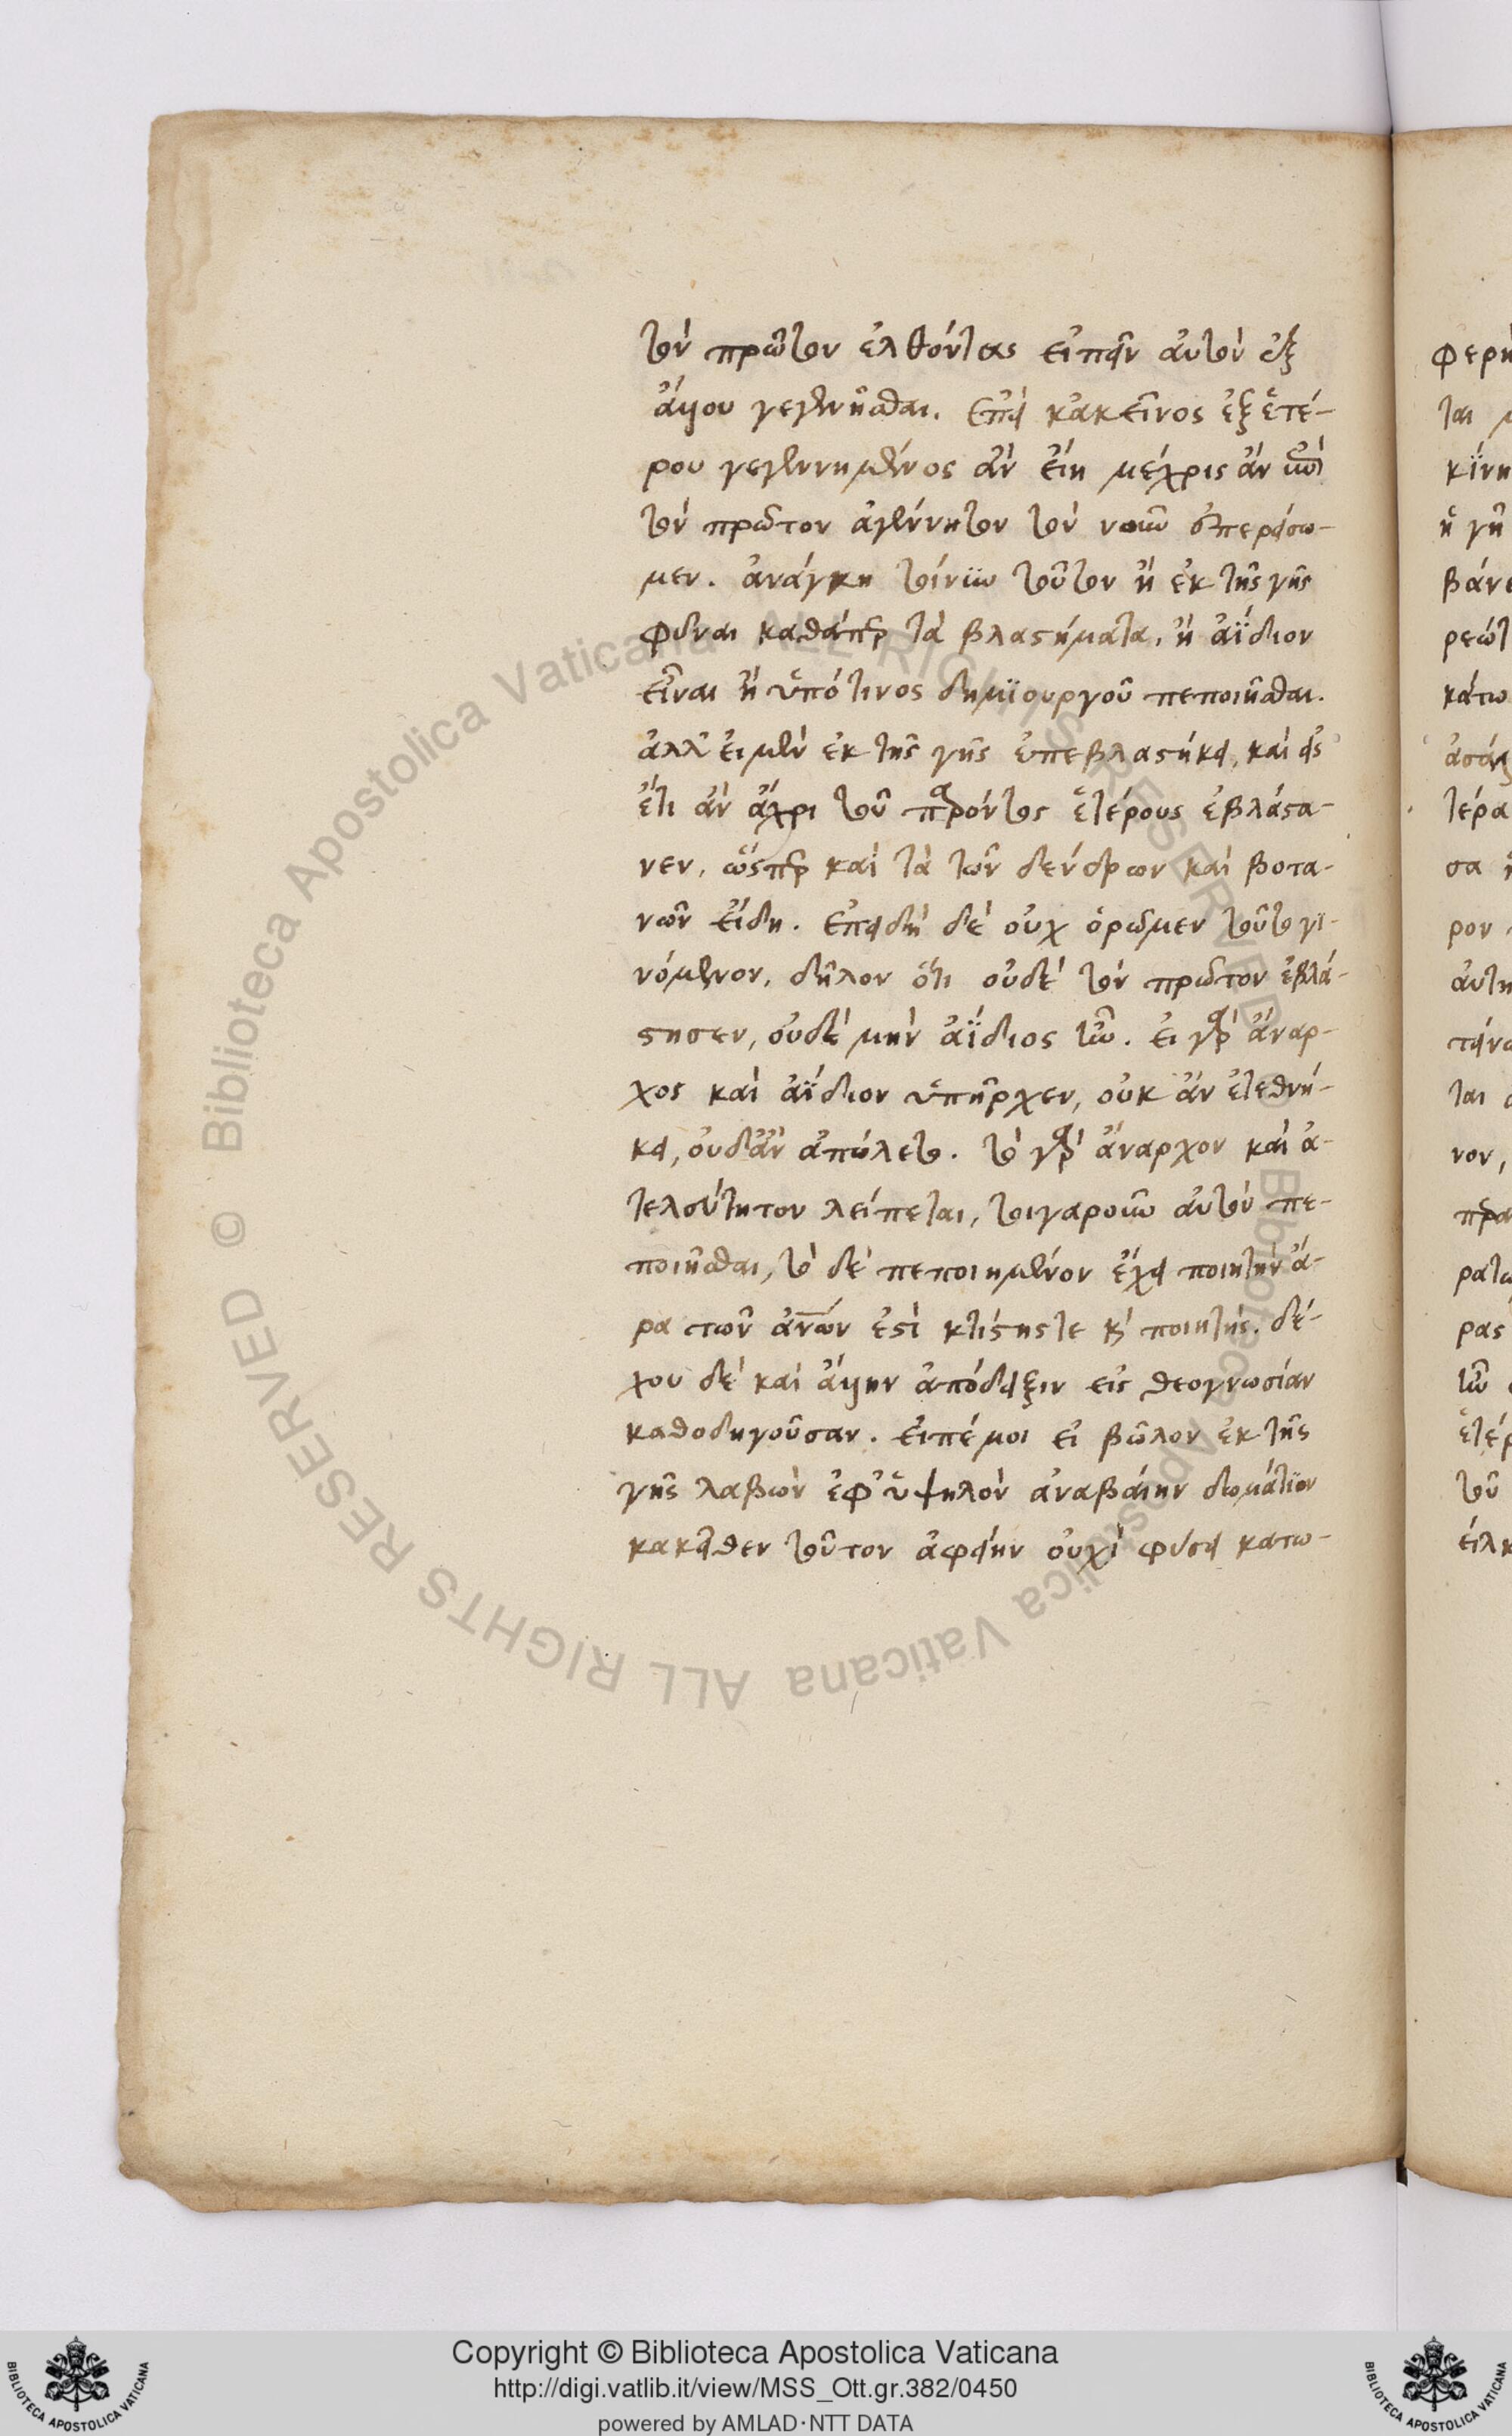 τὸν πρῶτον ἐλθόντας εἰπεῖν αὐτὸν ἐξ
ἄλλου γεγεννῆσθαι. ἐπεὶ κἀκεῖνος ἐξ ἑτέ-
ρου γεγεννημένος ἂν εἴη μέχρις ἂν
τὸν πρῶτον ἀγέννητον τὸν
μεν. ἀνάγκη τοίνυν τοῦτον ἢ ἐκ τῆς γῆς
φῦναι καθάπερ τὰ βλαστήματα, ἢ ἀΐδιον
εἶναι ἢ ὑπό τινος δημϊουργοῦ πεποιῆσθαι.
ἀλλ' εἰ μὲν ἐκ τῆς γῆς ἐπεβλαστήκει, καὶ εἰς
ἔτι ἂν ἄχρι τοῦ παρόντος ἑτέρους ἐβλάστα-
νεν, ὥσπερ καὶ τὰ τῶν δένδρων καὶ βοτα-
νῶν εἴδη. ἐπειδὴ δὲ οὐχ ὁρῶμεν τοῦτο γϊ-
νόμενον, δῆλον ὅτι οὐδὲ τὸν πρῶτον ἐβλά-
στησεν, οὐδὲ μὴν ἀΐδιος ἦν. εἰ γὰρ ἄναρ-
χος καὶ ἀΐδιον ὑπῆρχεν, οὐκ ἂν ἐτεθνή-
κει, οὐδ' ἂν ἀπώλετο. τὸ γὰρ ἄναρχον καὶ ἀ-
τελεύτητον λείπεται, τοιγαροῦν αὐτὸν πε-
ποιῆσθαι, τὸ δὲ πεποιημένον ἔχει ποιητὴν ἄ-
ρα τῶν ἀνων ἐστὶ κτίστης τε κ̀ ποιητής. δέ-
χου δὲ καὶ ἄλλην ἀπόδειξιν εἰς θεογνωσίαν
καθοδηγοῦσαν. εἰπέ μοι εἰ βῶλον ἐκ τῆς
γῆς λαβὼν ἐφ' ὑψηλὸν ἀναβαίην δωμάτϊον
κακεῖθεν τοῦτον ἀφείην οὐχὶ φύσει κατω-
Copyright © Biblioteca Apostolica Vaticana
http://digi.vatlib.it/view/MSS_Ott.gr.382/0450
powered by AMLAD·NTT DATA